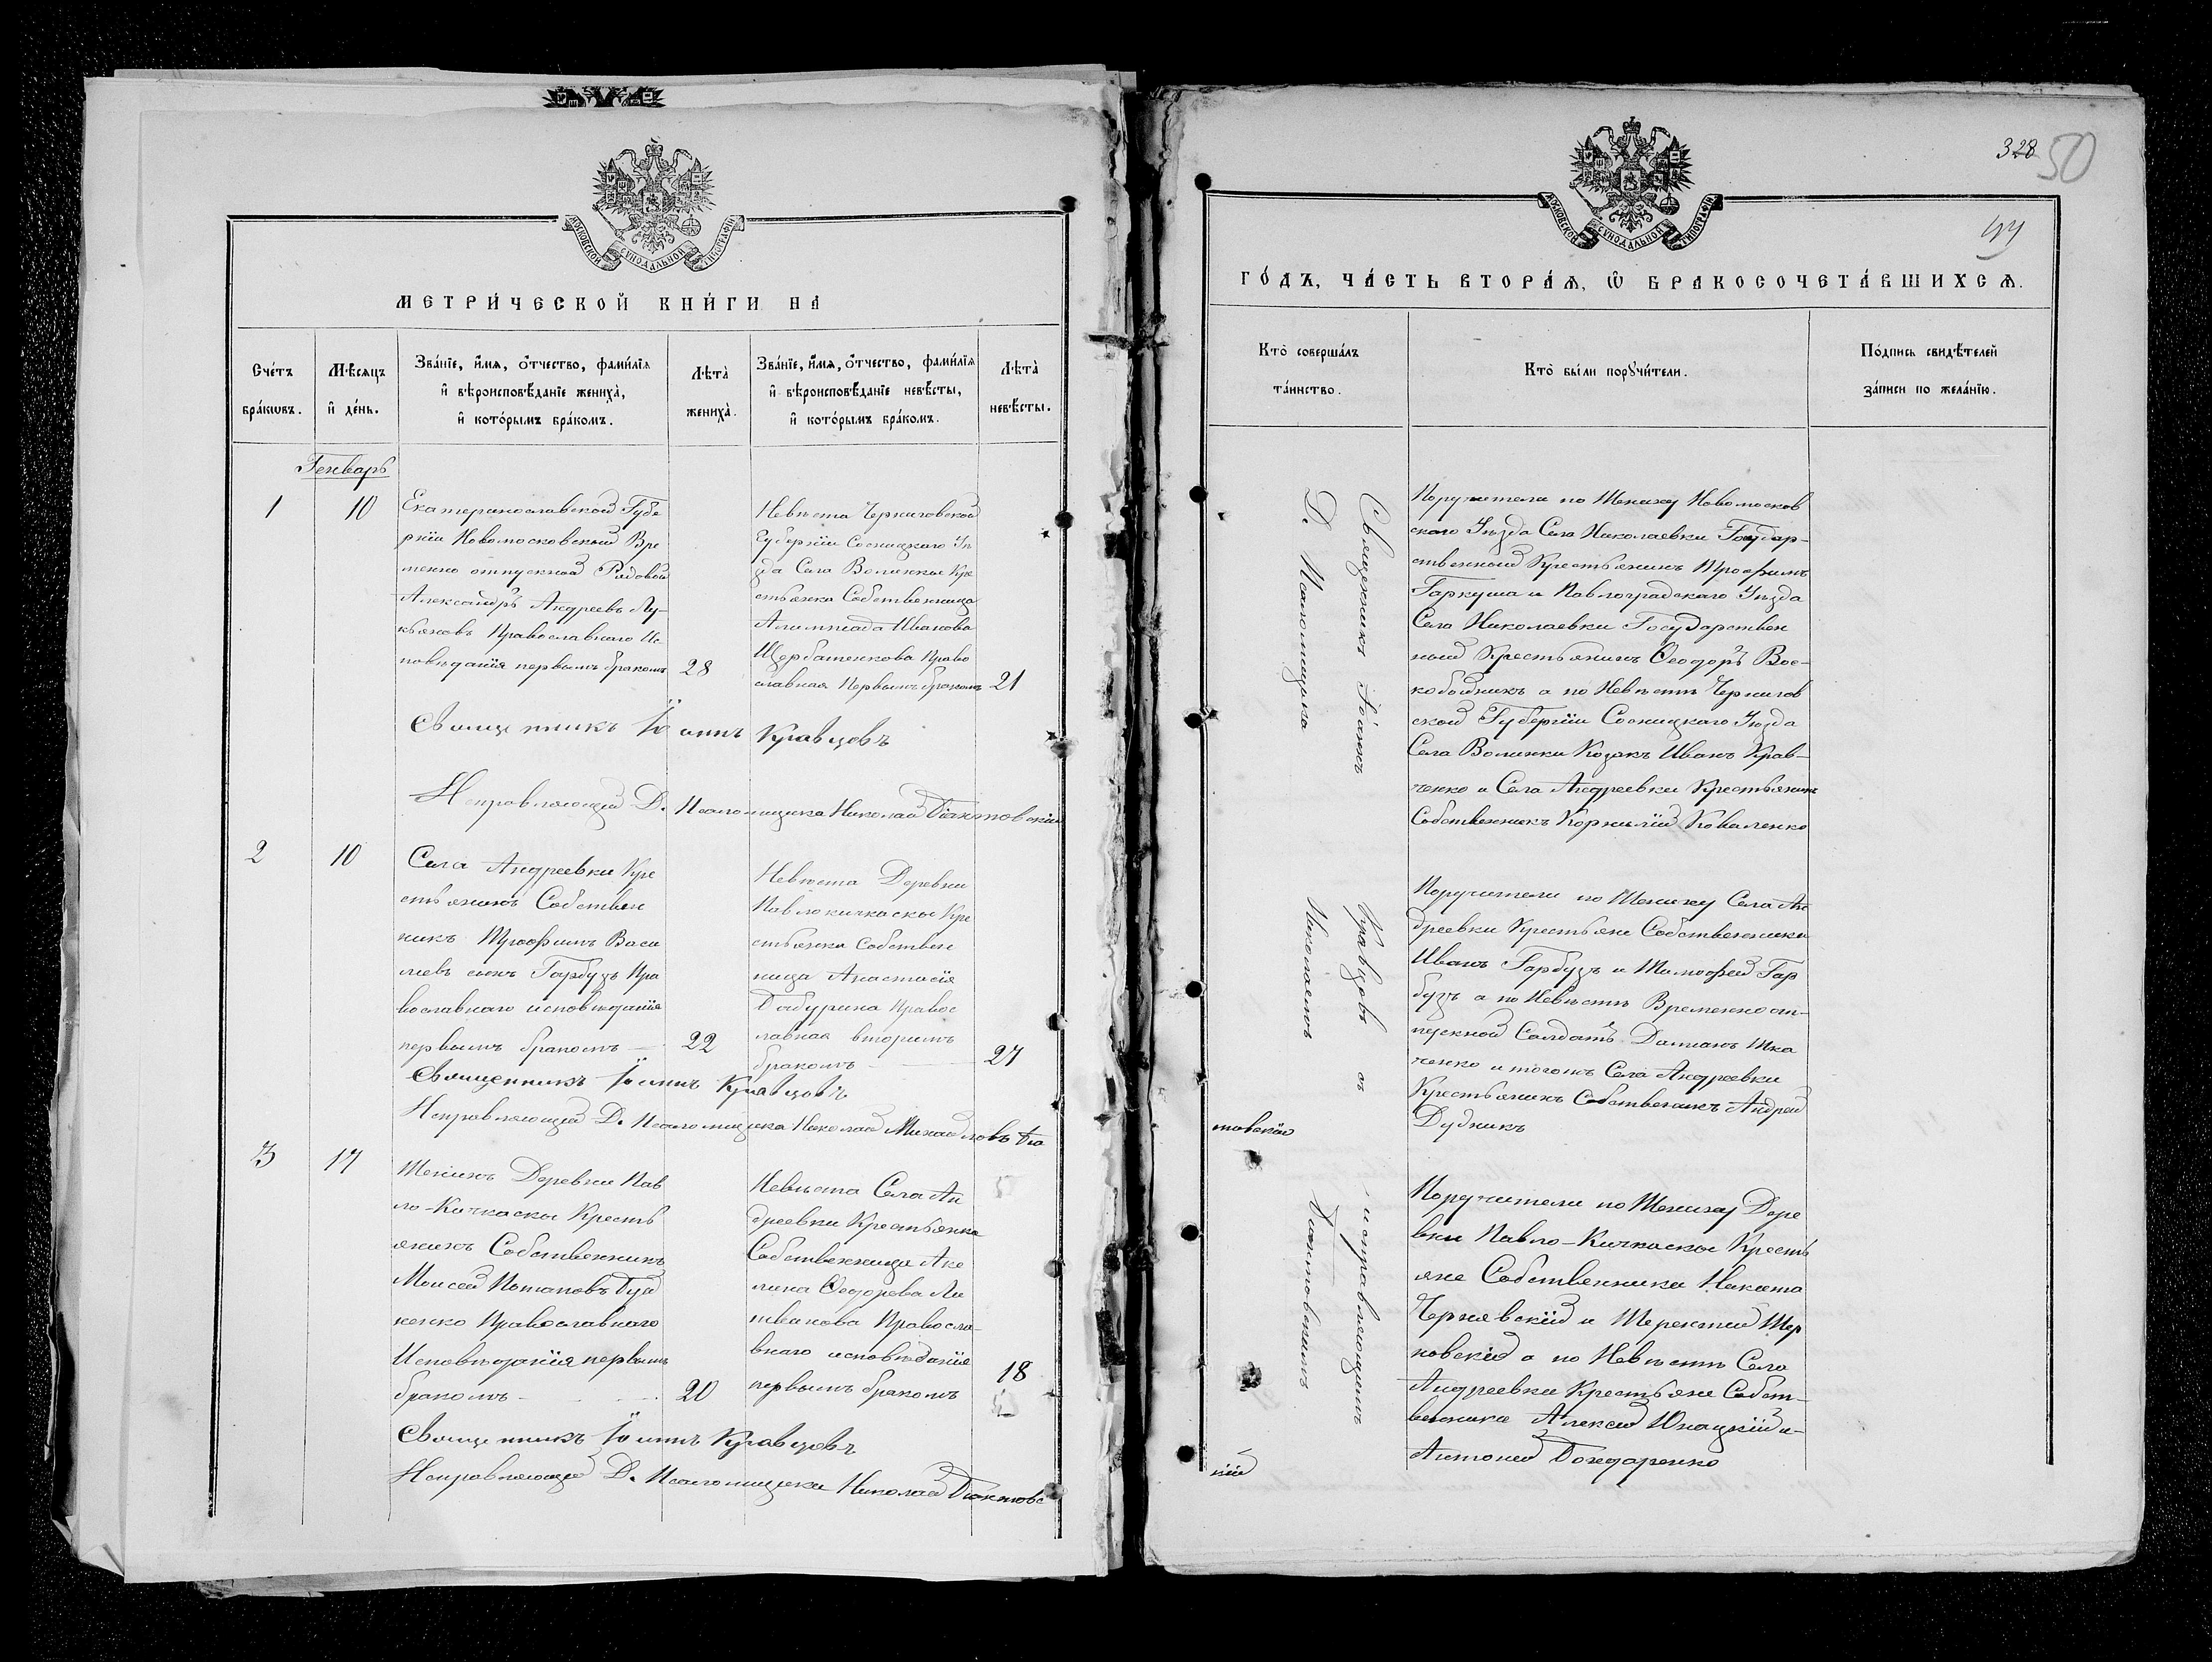 МОСКОВСКОЙ СѴНОДАЛЬНОЙ ТИПОГРАФІИ
МЕТРИ́ЧЕСКОЙ КНИ́ГИ НА
Сче́тъ бра́кωвъ.
Мѣ́сяцъ и҆ де́нь.
Зва́нїе, и҆́мѧ, о҆́тчество, фами́лїѧ и҆ вѣроисповѣ́данїе жениха̀, и҆ кото́рымъ бра́комъ.
Лѣ́та жениха̀.
Зва́нїе, и҆́мѧ, о҆́тчество, фами́лїѧ и҆ вѣроисповѣ́данїе невѣ́сты, и҆ кото́рымъ бра́комъ.
Лѣ́та невѣ́сты.
Генварь
1
10
Екатеринославской Губе
рніи Новомосковскій Вре
менно отпускной Рядовой
Александръ Андреевъ Лу-
кьяновъ Православнаго Ис
повѣданія первымъ бракомъ
28
Невѣста Черниговской
Губерніи Сосницкаго Уѣ
зда Села Волинки Кре
стьянка Собственница
Алимпіада Иванова
Щербатенкова Право
славная Первымъ бракомъ
21
Священникъ Іоаннъ Кравцовъ
Исправляющій Д. Псаломщика Николай Біантовскій
2
10
Села Андреевки Кре
стьянинъ Собствен
никъ Трофимъ Васи
лиевъ сынъ Гарбузъ Пра
вославнаго исповѣданія
первымъ бракомъ
22
Невѣста Деревни
Павлокичкаски Кре
стьянка Собствен
ница Анастасія
Бабурина Правос
лавная вторымъ
бракомъ
27
Священникъ Іоаннъ Кравцовъ
Исправляющій Д. Псаломщика Николай Михайловъ Біа
3
17
Женихъ Деревни Пав
ло-Кичкаски Кресть
янинъ Собственникъ
Моисей Потаповъ Гуй
ненко Православнаго
Исповѣданія первымъ
бракомъ
20
Невѣста Села Ан
древки Крестьянка
Собственница Аку
лина Ѳеодорева Ли
твинова Правосла-
внаго исповѣданія
первымъ бракомъ
18
Священникъ Іоаннъ Кравцовъ
Исправляющій Д. Псаломщика Николай Біантовс
328
50
МОСКОВСКОЙ СѴНОДАЛЬНОЙ ТИПОГРАФІИ
49
ГО́ДЪ, ЧА́СТЬ ВТОРА́Ѧ, Ѡ҆ БРАКОСОЧЕТА́ВШИХСѦ.
Кто̀ соверша́лъ та́инство.
Кто̀ бы́ли порꙋчи́тели.
По́дпись свидѣ́телей за́писи по жела́нїю.
Священникъ Іоаннъ Кравцовъ съ исправляющимъ
Д. Псаломщика Николаемъ Біантовскимъ
товскій
кій
Поручители по Жениху Новомосков
скаго Уѣзда Села Николаевки Государ-
ственный Крестьянинъ Трофимъ
Гаркуша и Павлоградскаго Уѣзда
Села Николаевки Государствен
ный Крестьянинъ Ѳеодоръ Вос-
кобойникъ а по Невѣстѣ Чернигов
ской Губерніи Сосницкаго Уѣзда
Села Волинки Козакъ Иванъ Крав-
ченко и Села Андреевки Крестьянинъ
Собственникъ Корнилій Коваленко
Поручители по Жениху Села Ан
дреевки Крестьяне Собственники
Иванъ Гарбузъ и Тимофей Гар
бузъ а по Невѣстѣ Временно от-
пускной Солдатъ Даміанъ Тка
ченко и тогожъ Села Андреевки
Крестьянинъ Собственникъ Андрей
Дудникъ
Поручители по Жениху Дере
вни Павло-Кичкаски Кресть
яне Собственники Никита
Чернявскій и Терентій Тер
новскій а по Невѣстѣ Села
Андреевки Крестьяне Собст-
венники Алексѣй Юнацкій и
Антоній Бондаренко